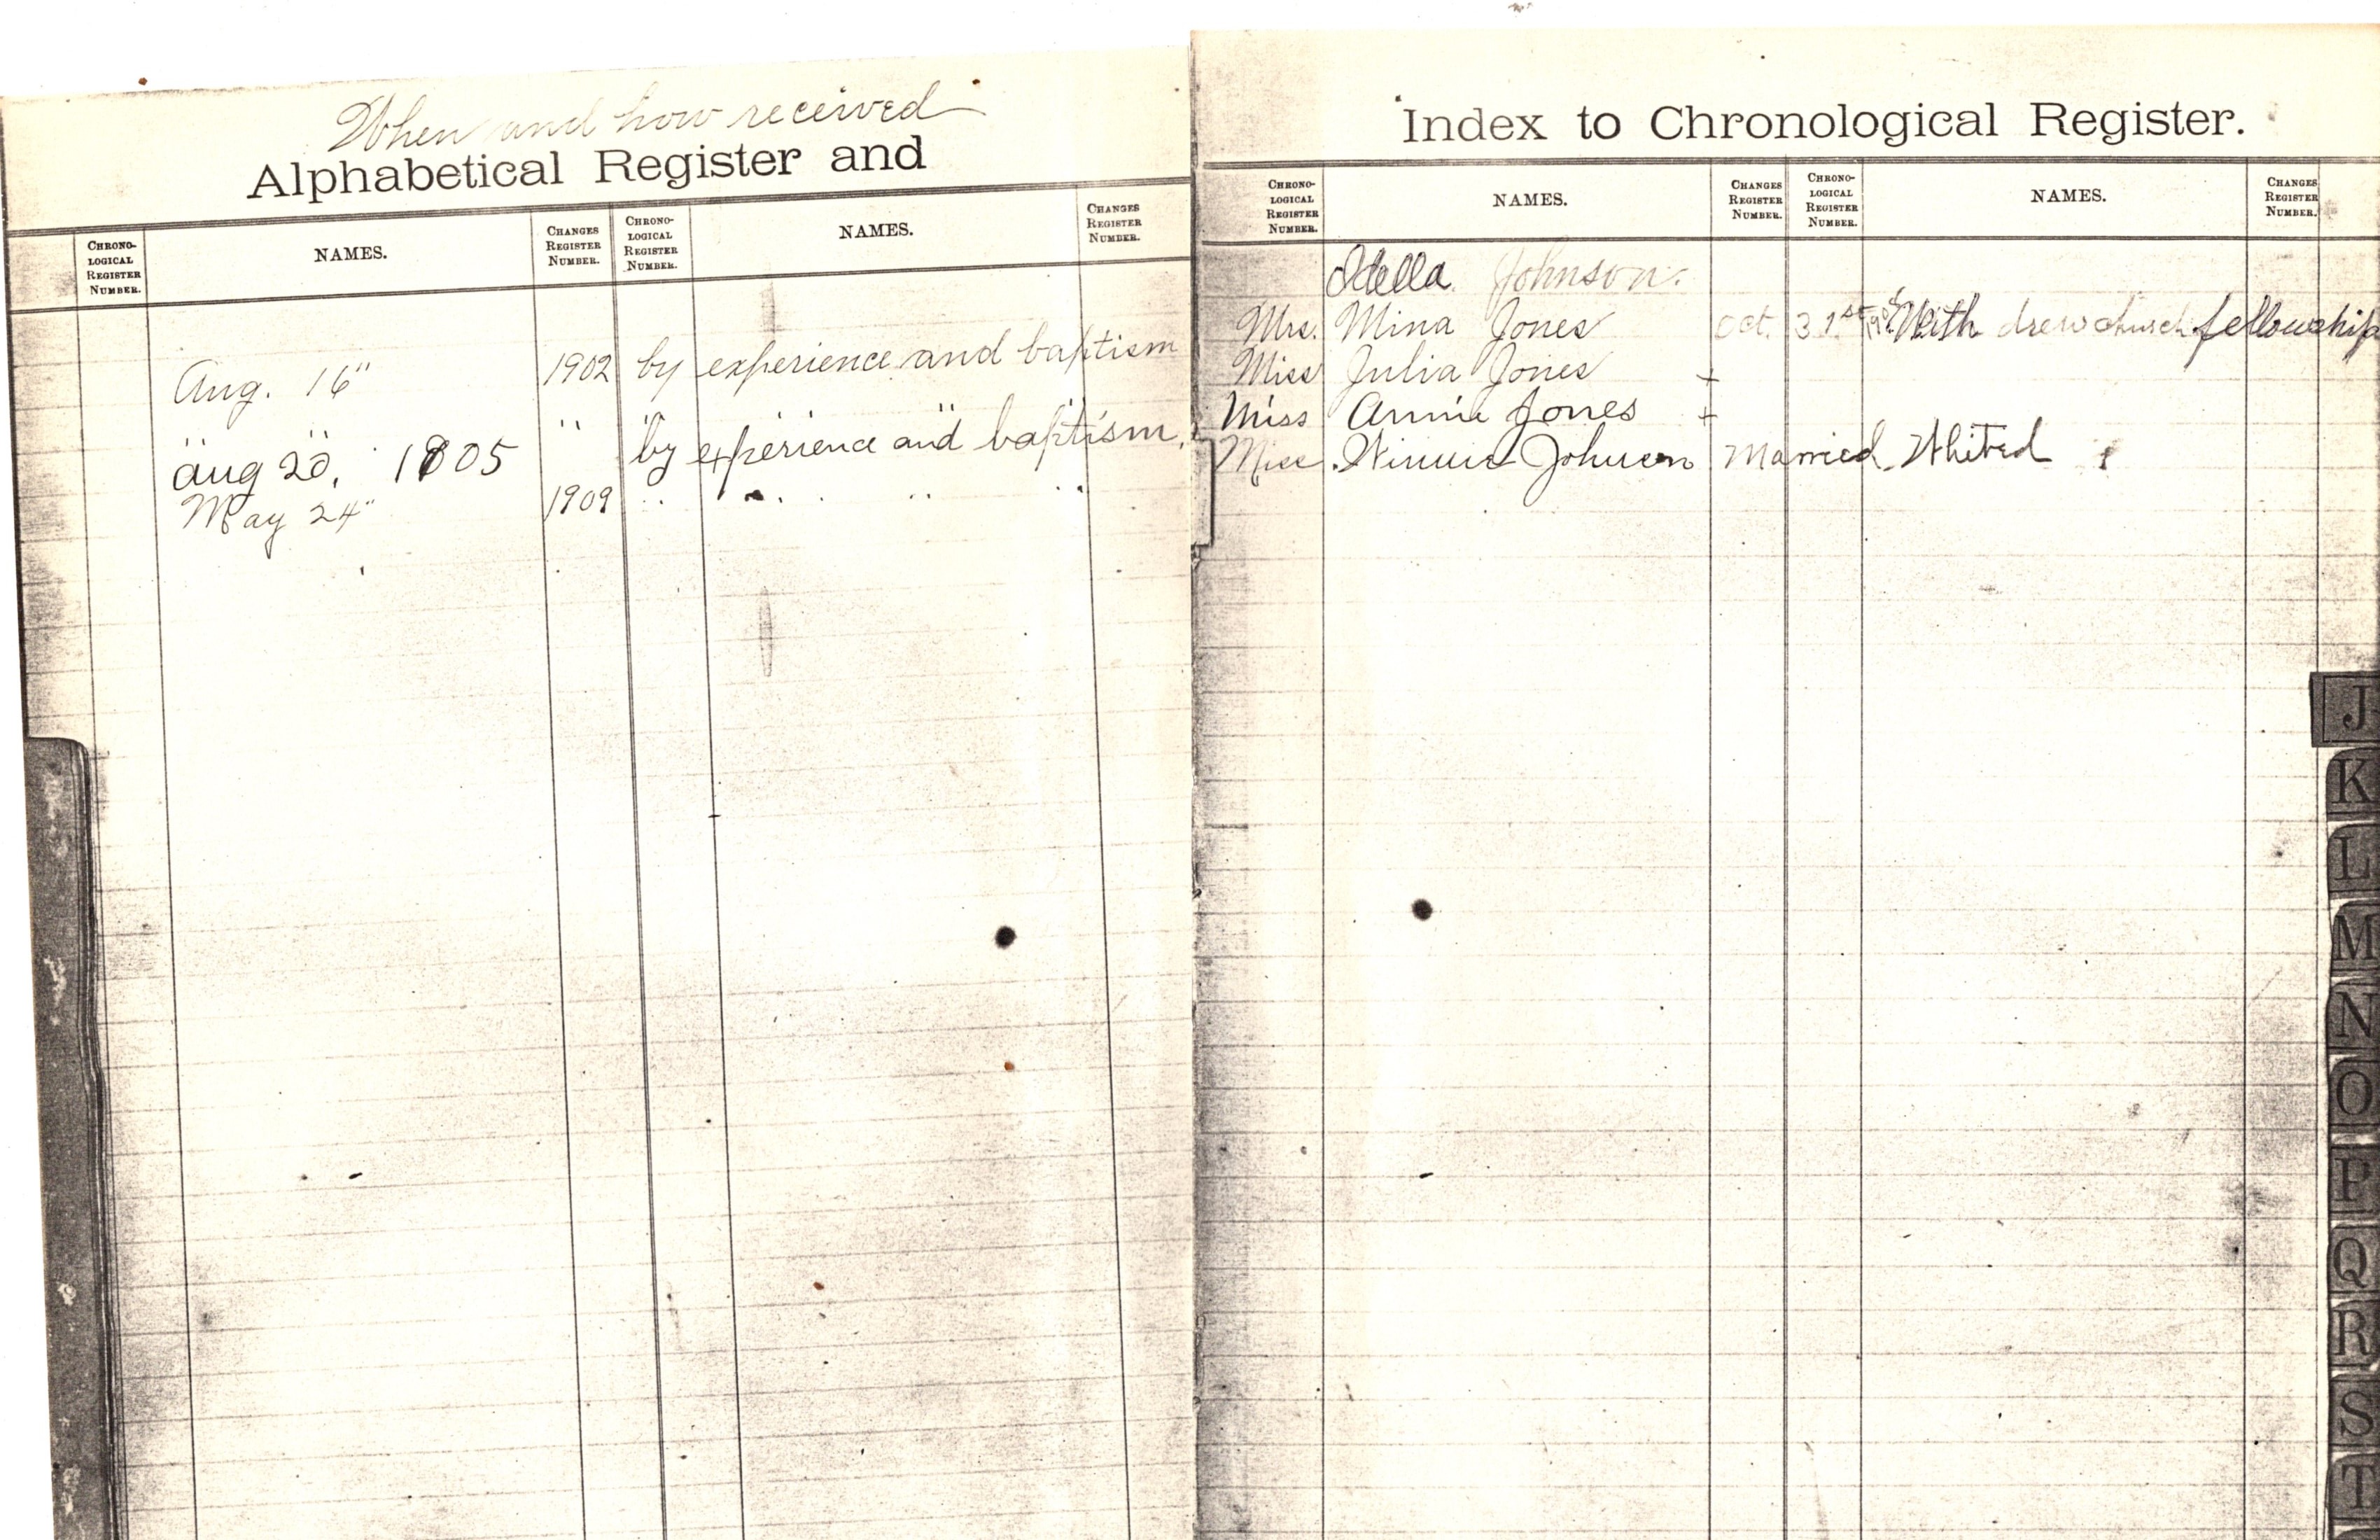 When and how received
Alphabetical Register and
CHRONO-
LOGICAL
REGISTER
NUMBER.
NAMES.
CHANGES
REGISTER
NUMBER.
CHRONO-
LOGICAL
REGISTER
NUMBER.
NAMES.
CHANGES
REGISTER
NUMBER.
Aug. 16" 1902 by experience and baptism
" " " " " " "
Aug 20, 1805 by experience and baptism.
May 24" 1909 " " " "
Index to Chronological Register.
CHRONO-
LOGICAL
REGISTER
NUMBER.
NAMES.
CHANGES
REGISTER
NUMBER.
CHRONO-
LOGICAL
REGISTER
NUMBER.
NAMES.
CHANGES
REGISTER
NUMBER.
Idella Johnson.
Mrs. Mina Jones Oct. 31st With drew church fellowship
Miss Julia Jones +
Miss Annie Jones +
Miss Johnson Married Whited
J
K
L
M
N
O
P
Q
R
S
T